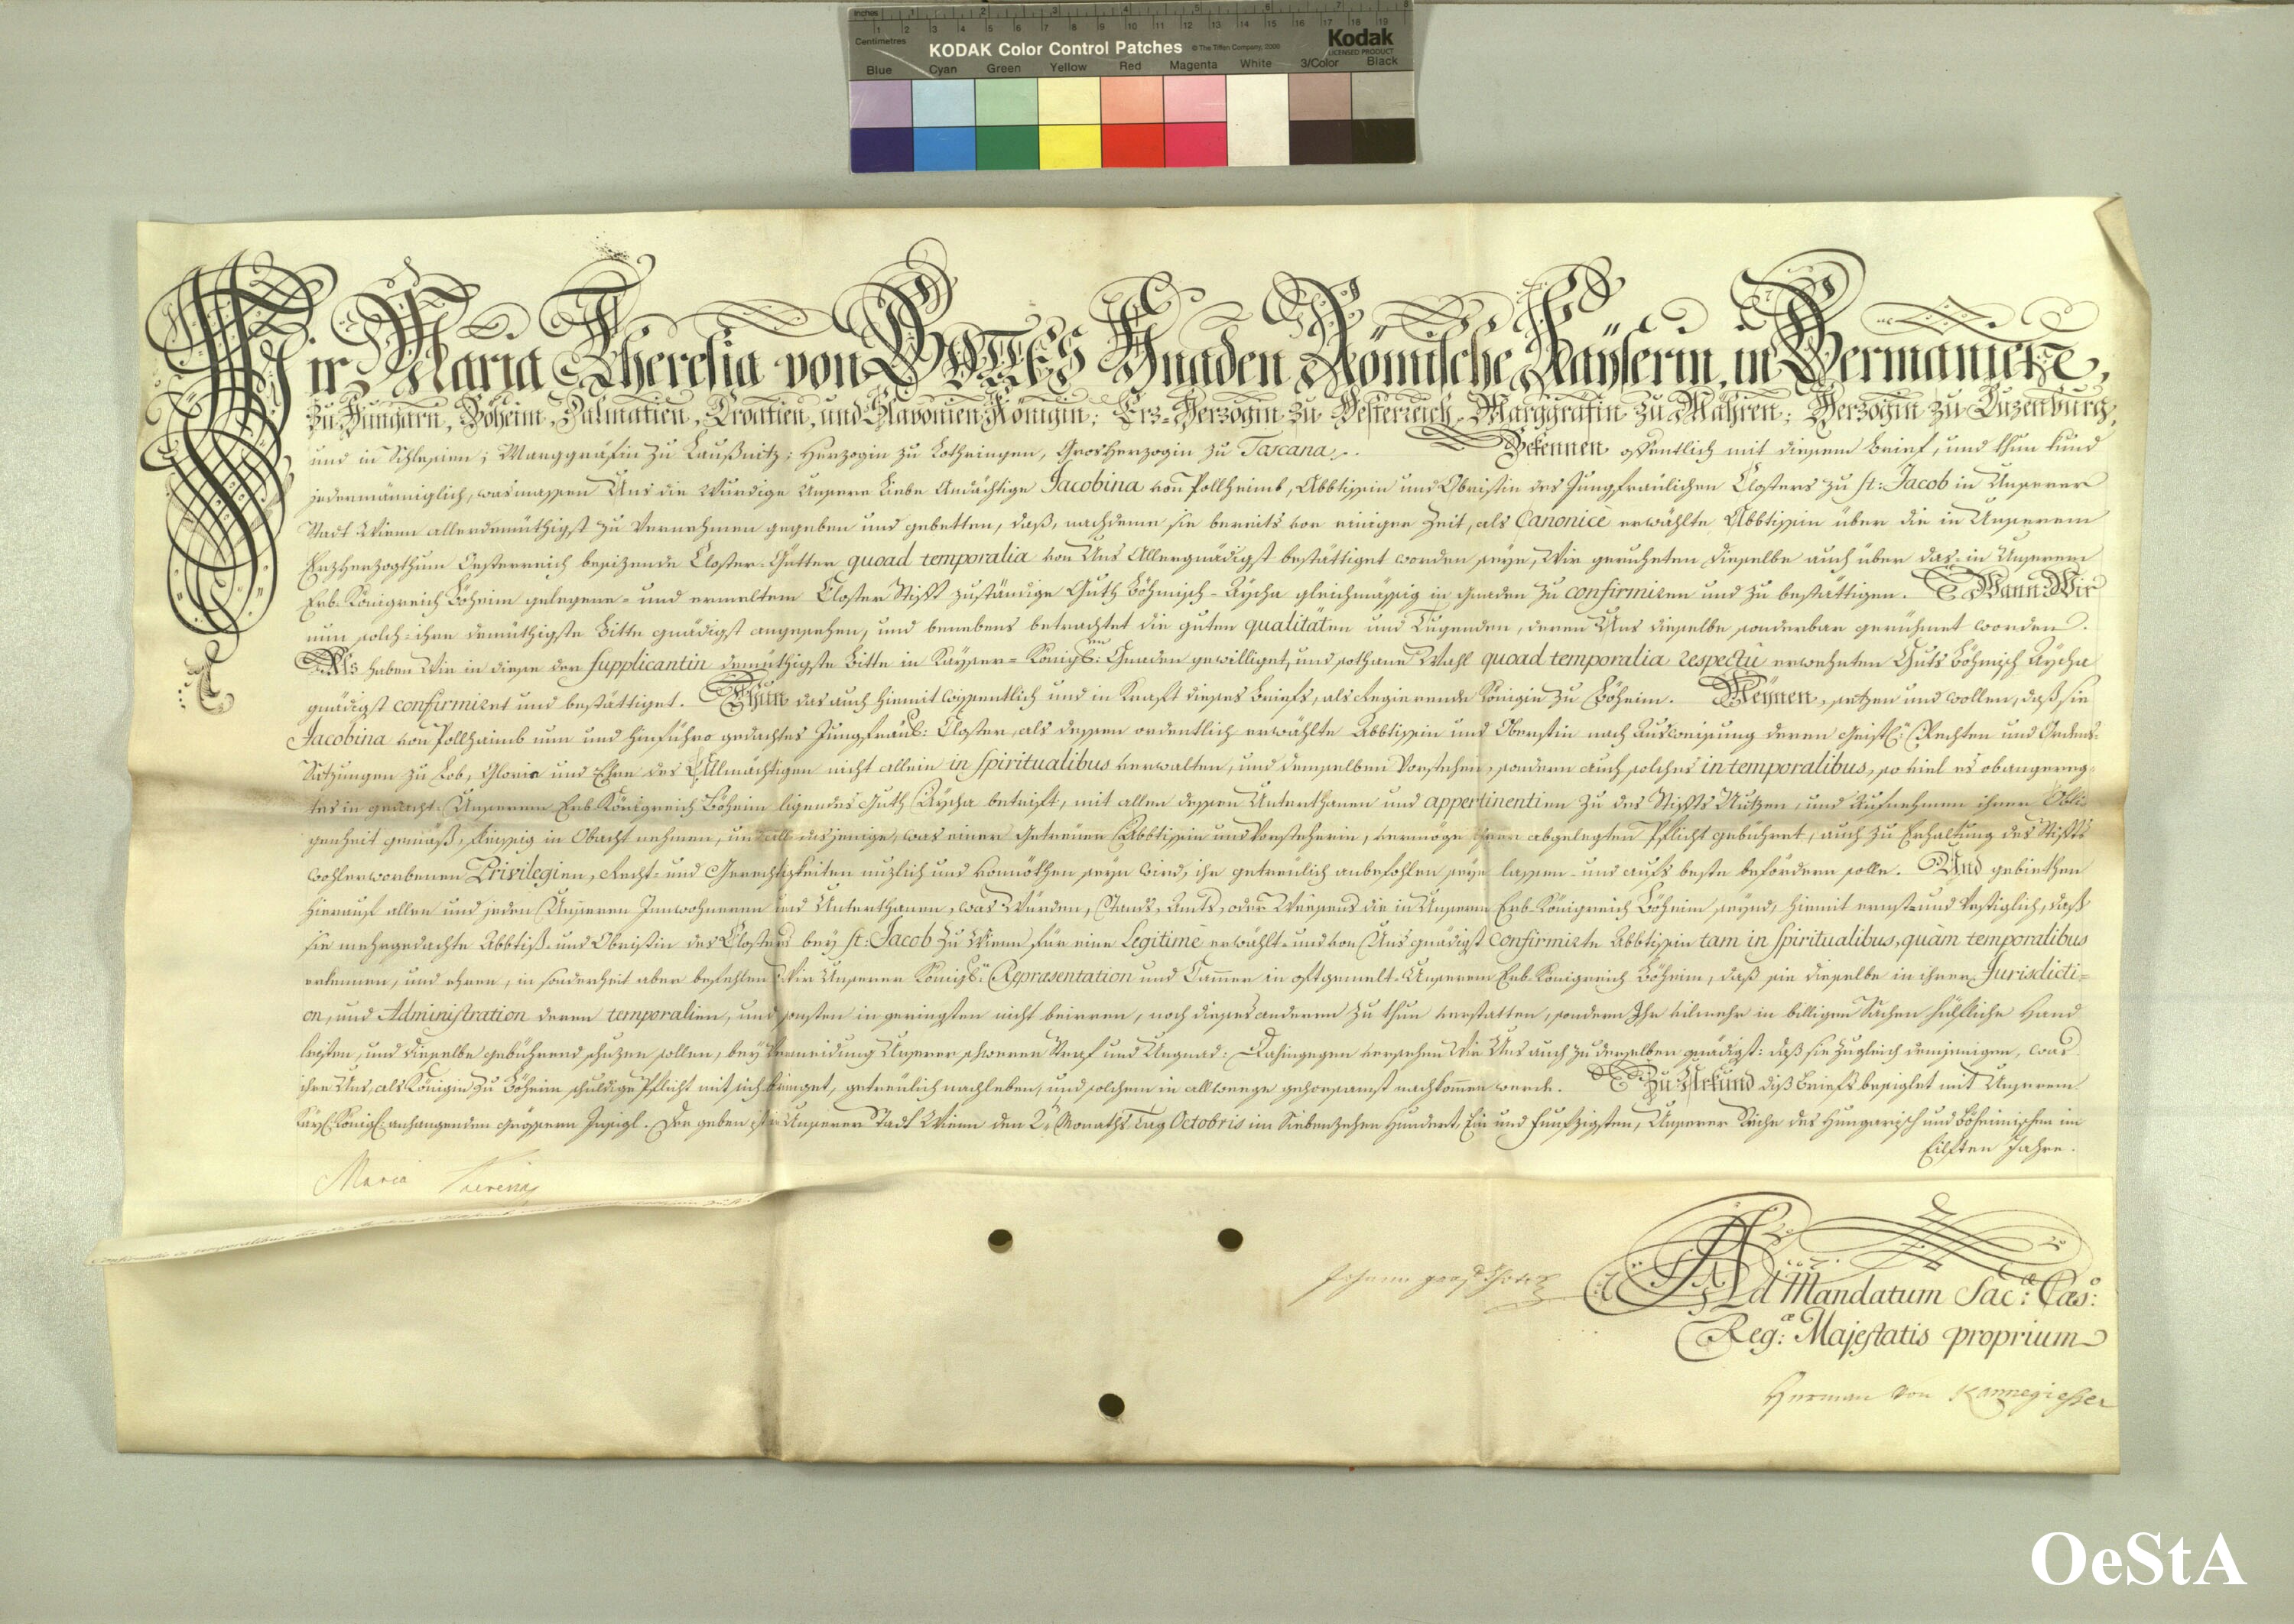 Inches 1 2 3 4 5 6 7 8
Centimetres 1 2 3 4 5 6 7 8 9 10 11 12 13 14 15 16 17 18 19
KODAK Color Control Patches © The Tiffen Company, 2000 Kodak
LICENSED PRODUCT
Blue Cyan Green Yellow Red Magenta White 3/Color Black
Wir Maria Theresia von GOTTES Gnaden Römische Kayserin, in Germanien,
zu Hungarn, Böheim, Dalmatien, Croatien, und Slavonien Königin; Erz-Herzogin zu Oesterreich, Marggräfin zu Mähren; Herzogin zu Luzenburg,
und in Schlesien; Marggräfin zu Laußnitz; Herzogin zu Lothringen, GrosHerzogin zu Toscana. Bekennen offentlich mit diesem Brief, und thun kund
jedermänniglich, wasmassen Uns die Würdige Unsere Liebe Andächtige Jacobina von Pollheimb, Abbtissin und Obristin des Jungfräulichen Closters zu st: Jacob in Unserer
Stadt Wienn allerdemüthigst zu vernehmen gegeben und gebetten, daß, nachdeme sie bereits vor einiger Zeit, als Canonicè erwählte Abbtissin über die in Unserem
Erzherzogthum Oesterreich besizende Closter-Gütter quoad temporalia von Uns Allergnädigst bestättiget worden seye, Wir geruheten dieselbe auch über das in Unserem
Erb-Königreich Böheim gelegene- und ermeltem Closter Stifft zuständige Guth Böhmisch-Rycha gleichmässig in Gnaden zu confirmiren und zu bestättigen. Wann Wir
nun solch-ihre demüthigste Bitte gnädigst angesehen, und benebens betrachtet die guten qualitäten und Tugenden, deren Uns dieselbe sonderbar gerühmet worden.
Als haben Wir in diese der Supplicantin demüthigste Bitte in Kayser-Königl: Gnaden gewilliget, und sothane Wahl quoad temporalia respectu erwehnten Guts Böhmisch Rycha
gnädigst confirmiret und bestättiget. Thun das auch hiemit wissentlich und in Krafft dieses Briefs, als Regierende Königin zu Böheim. Meynen, setzen und wollen, daß sie
Jacobina von Pollhaimb nun und hinführo gedachtes Jungfräul: Closter, als dessen ordentlich erwählte Abbtissin und Obristin nach Ausweisung deren Geistl: Rechten und Ordens-
Satzungen zu Lob, Gloria und Ehre des Allmächtigen nicht allein in Spiritualibus verwalten, und demselben vorstehen, sondern auch solches in temporalibus, so viel es obangereg-
tes in gedacht-Unserem Erb-Königreich Böheim ligendes Guth Rycha betrifft, mit allen dessen Unterthanen und appertinentien zu des Stiffts Nutzen, und Aufnehmen ihrer Obli-
genheit gemäß, fleissig in Obacht nehmen, und all-dasjenige, was einer Getreuen Abbtissin und Vorsteherin, vermöge ihrer abgelegten Pflicht gebühret, auch zu Erhaltung des Stiffts
wohlerworbenen Privilegien, Recht- und Gerechtigkeiten nuzlich und vonnöthen seyn wird, ihr getreulich anbefohlen seyn lassen- und aufs beste befördern solle. Und gebiethen
hierauf allen und jeden Unseren Innwohneren und Unterthanen, was Würden, Stands, Amts, oder Weesens die in Unserm Erb-Königreich Böheim seynd, hiemit ernst-und vestiglich, daß
sie mehrgedachte Abbtiss-und Obristin des Closters bey st: Jacob zu Wienn für eine Legitimè erwählt-und von Uns gnädigst confirmirte Abbtissin tam in Spiritualibus, quàm temporalibus
erkennen, und ehren, in sonderheit aber befehlen Wir Unserer Königl: Repraesentation und Cammer in offtgemelt-Unserem Erb-Königreich Böheim, daß sie dieselbe in ihrer Jurisdicti-
on, und Administration deren temporalien, und sonsten in geringsten nicht beirren, noch dieses anderen zu thun verstatten, sondern Ihr vilmehr in billigen Sachen hülfliche Hand
leisten, und dieselbe gebührend schuzen sollen, bey Vermeidung Unserer schweren Straf und Ungnad: Dahingegen versehen Wir Uns auch zu derselben gnädigst: daß sie zugleich demjenigen, was
ihre Uns, als Königin zu Böheim schuldige Pflicht mit sich bringet, getreulich nachleben, und solchem in allweege gehorsamst nachkommen werde. Zu Urkund diß Briefs besiglet mit Unserem
Kayl: Königl: anhangenden grössern Insigl. Der geben ist in Unserer Stadt Wienn den 2ten Monaths Tag Octobris im Siebenzehen Hundert, Ein und Funfzigsten, Unserer Reiche des Hungarisch und Böheimischen im
Eilften Jahre.
Maria Theresia
Johann
Ad Mandatum Sac:ae Caes:o
Reg:ae Majestatis proprium
Herman von Kannegiesser
OeStA